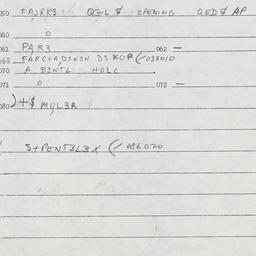 050 FAJRK3 QGL $ OPENING QED$ AP
060 0
061 PAR3 062 —
063 FARC+A,D1N1N D3 KOP (/035010
070 A B1NTL HOLC
071 0 072 —
080 )+$ MUL3R
S+PENT3L3X (/086020